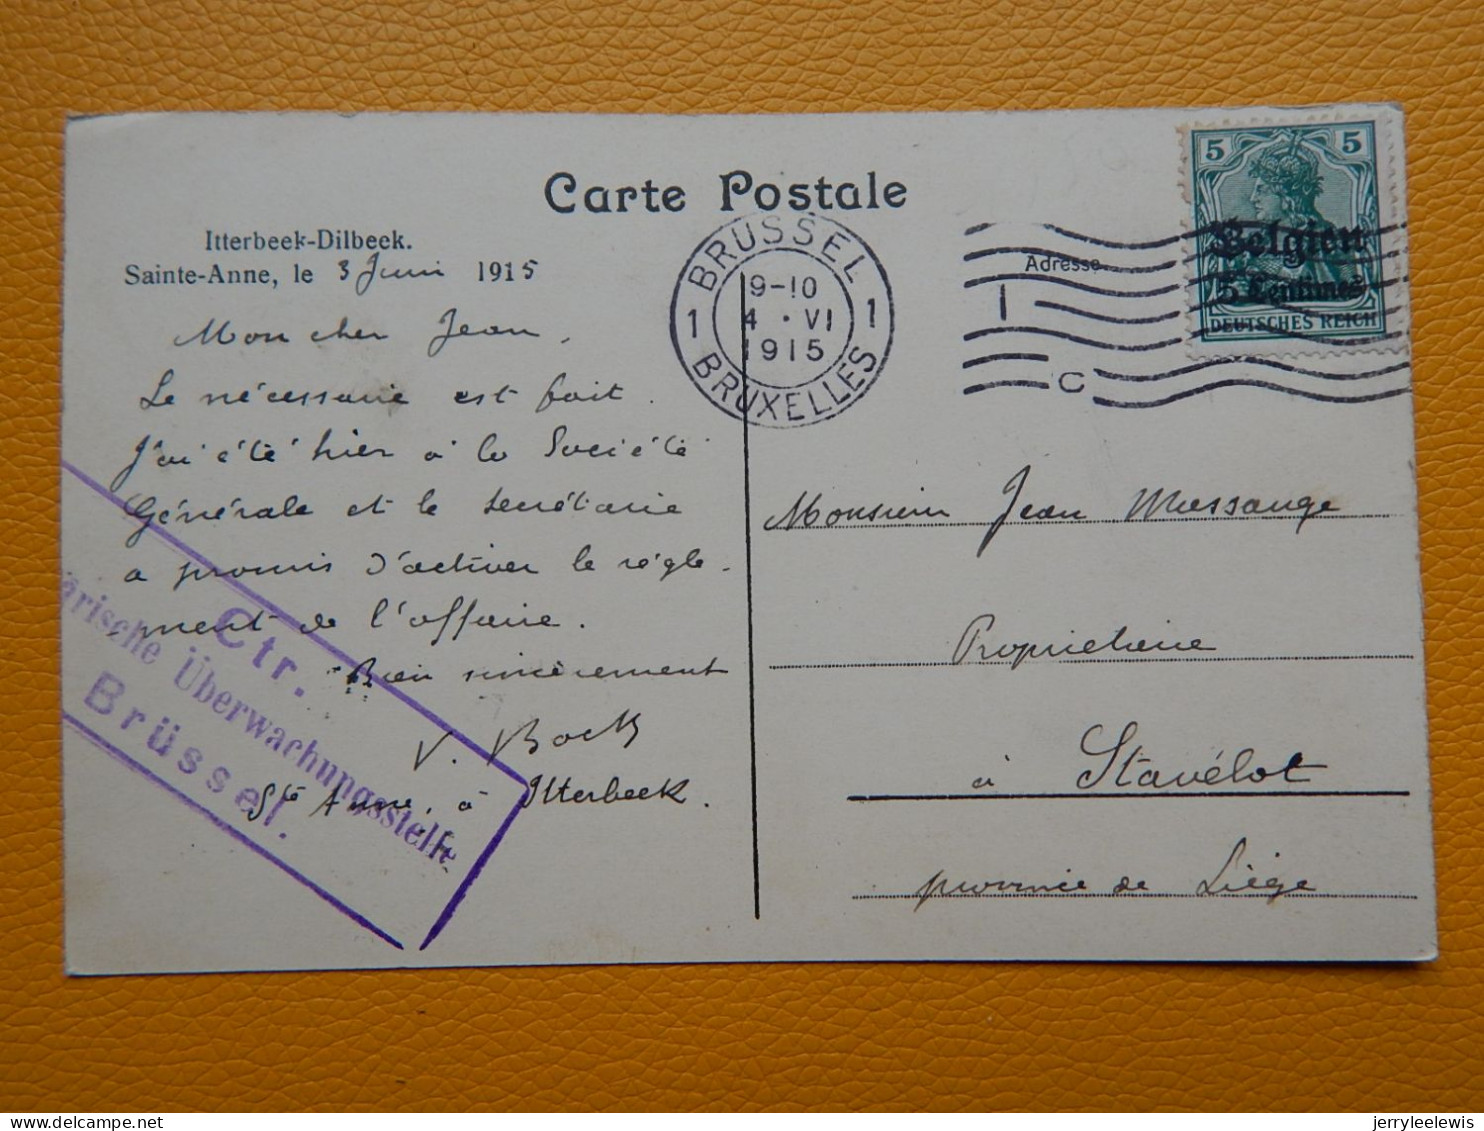 Carte Postale
Itterbeek-Dilbeek.
Sainte-Anne, le 3 Juin 1915
Mon cher Jean,
Le nécessaire est fait.
J'ai été hier à la Société
Générale et le secrétaire
a promis d'activer le règle-
ment de l'affaire.
Bien sincèrement
V. Bock
Ste Anne, à Itterbeek.
Ctr.
ärische Überwachungsstelle
Brüssel.
BRUSSEL
1 1
9-10
4 · VI
1915
BRUXELLES
1
C
5 5
Belgien
5 Centimes
DEUTSCHES REICH
Adresse
Monsieur Jean Massange
Propriétaire
à Stavélot
province de Liège
jerryleelewis